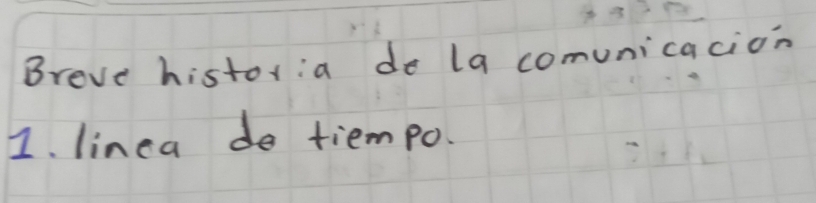 Breve historia de la comunicación
1. linea de tiempo.